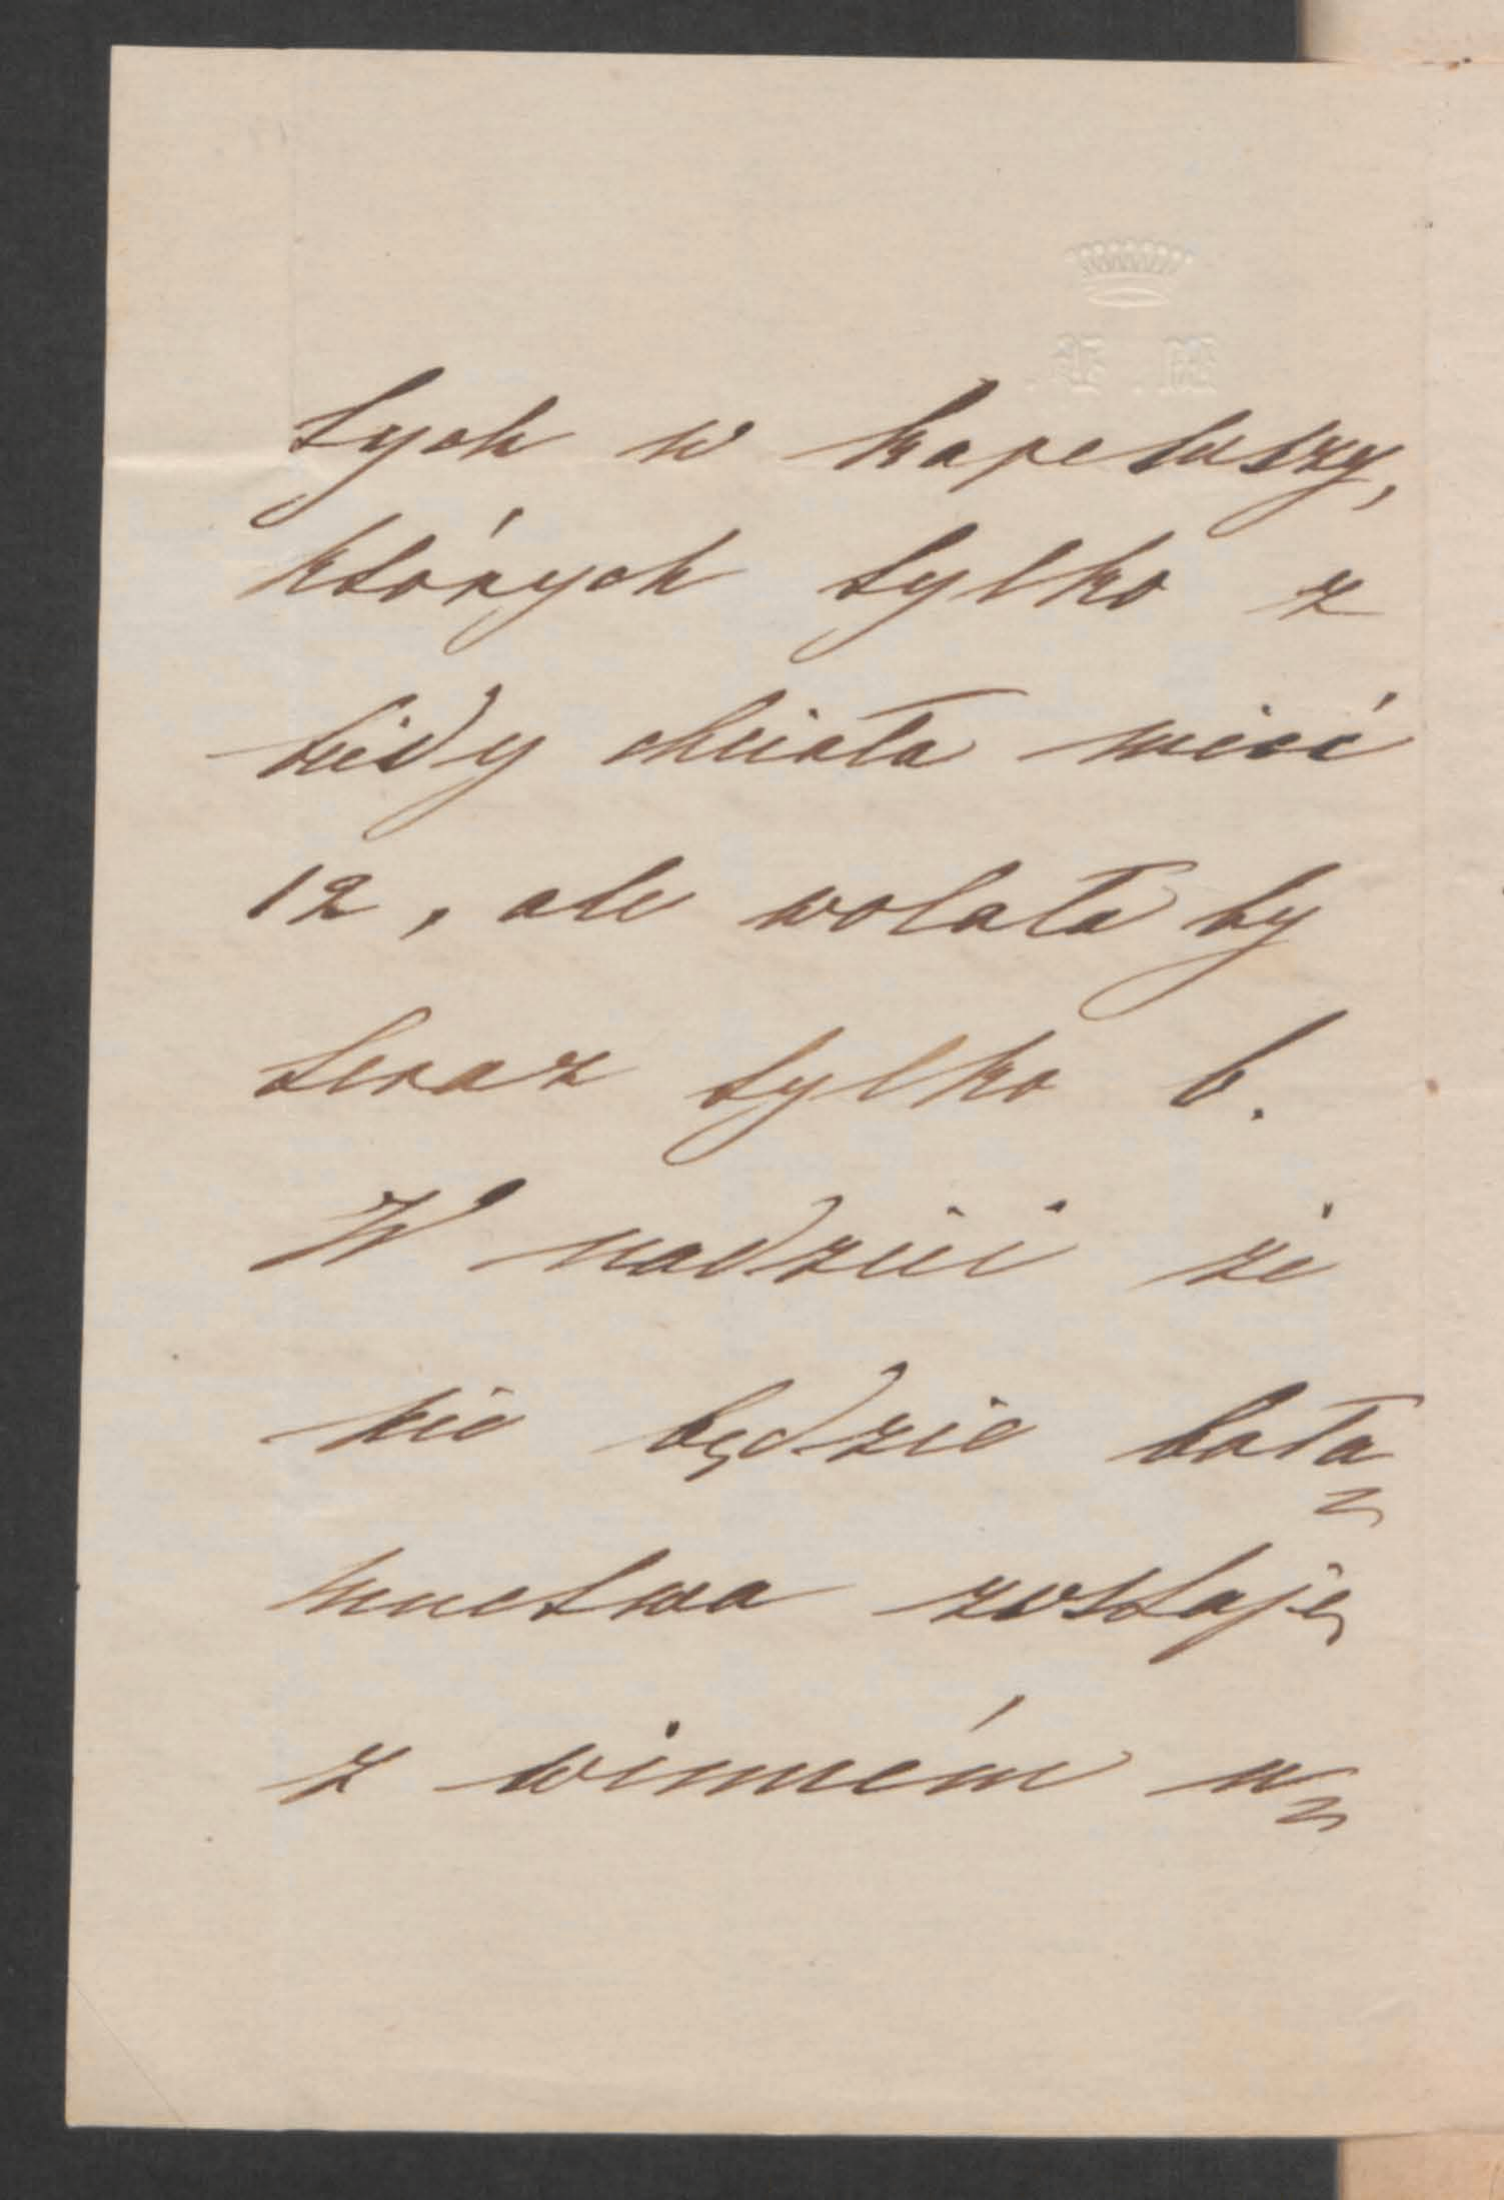 tych w kapeluszy,
których tylko z
bidy chciała mieć
12, ale wolała by
teraz tylko 6.
W nadziei że
nie będzie bała=
muctwa zostaję
z winném u=